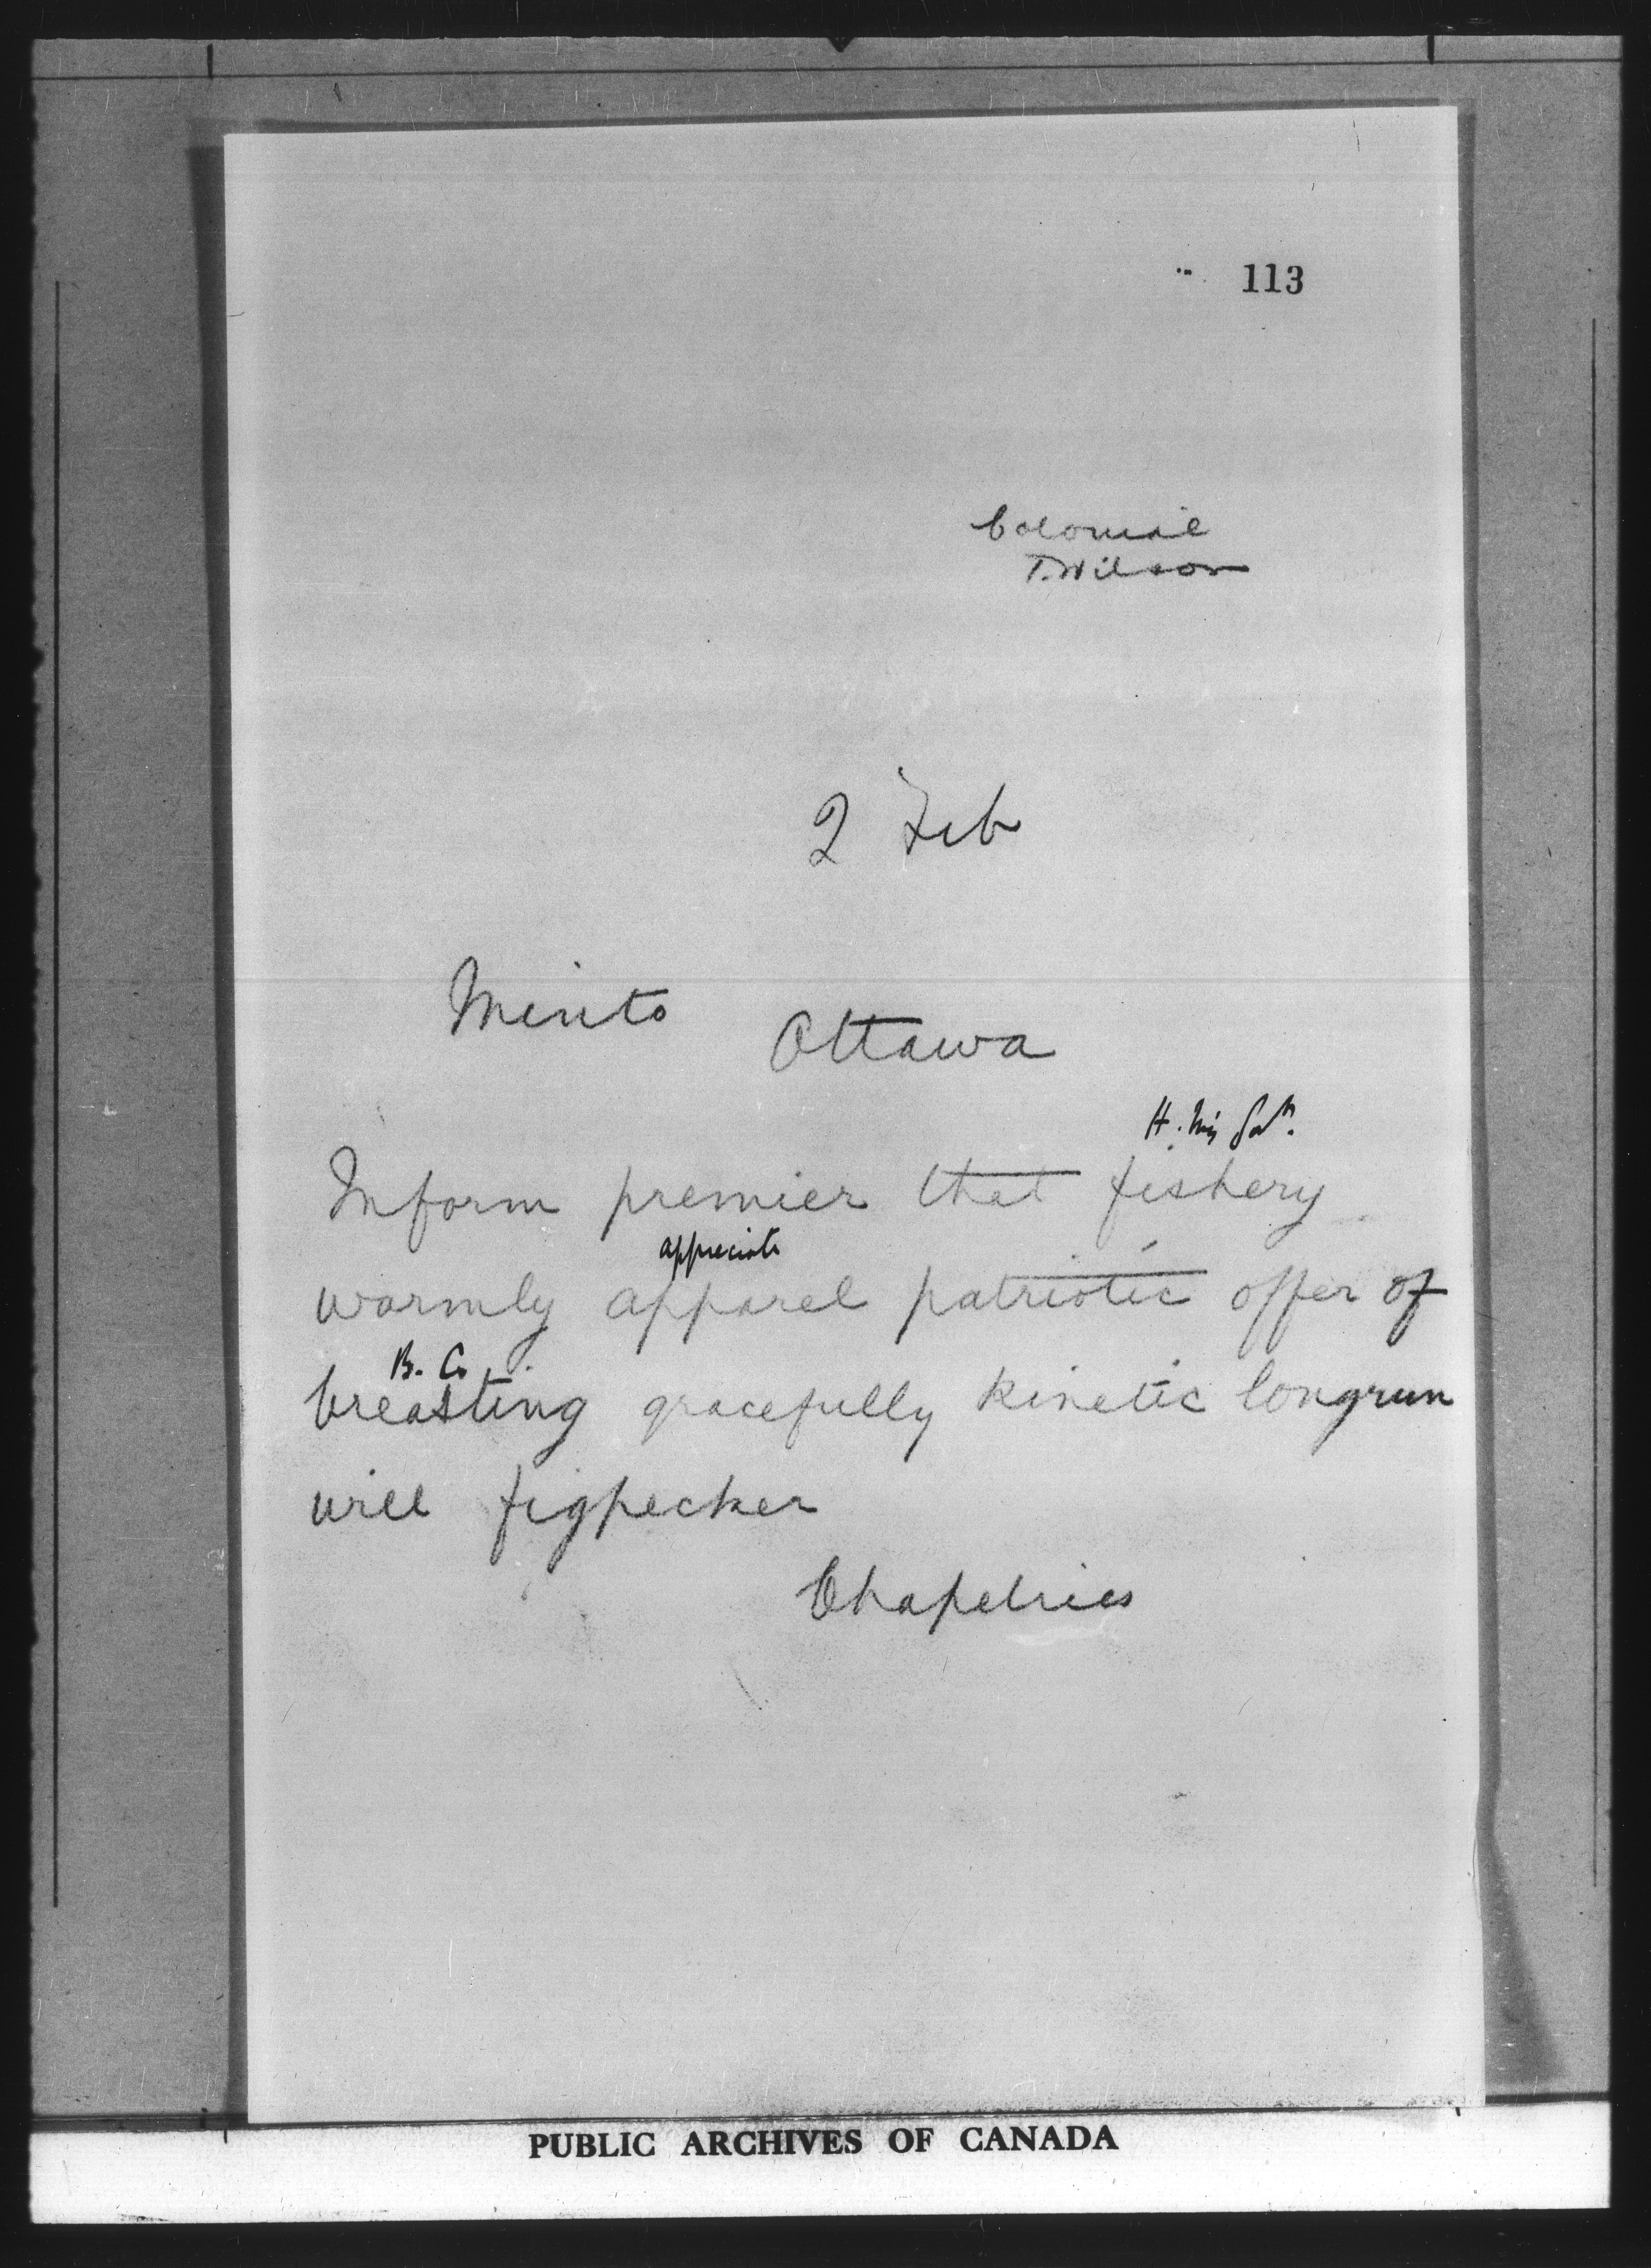 113
Colonial
T. Wilson
2 Feb
Minto Ottawa
H. Mys Govt.
Inform premier that fishery
appreciate
warmly apparel patriotic offer of
B. C.
breasting gracefully kinetic longrun
will figpecker
Chapelries
PUBLIC ARCHIVES OF CANADA